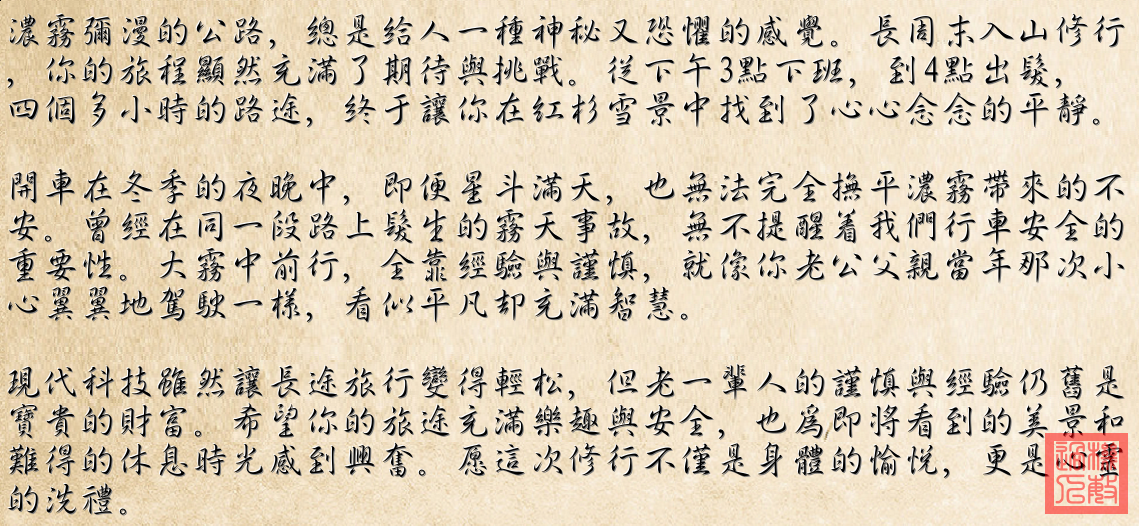 濃霧彌漫的公路，總是給人一種神秘又恐懼的感覺。長周末入山修行
，你的旅程顯然充滿了期待與挑戰。從下午3點下班，到4點出髮，
四個多小時的路途，終于讓你在紅杉雪景中找到了心心念念的平靜。
開車在冬季的夜晚中，即便星斗滿天，也無法完全撫平濃霧帶來的不
安。曾經在同一段路上髮生的霧天事故，無不提醒着我們行車安全的
重要性。大霧中前行，全靠經驗與謹慎，就像你老公父親當年那次小
心翼翼地駕駛一樣，看似平凡却充滿智慧。
現代科技雖然讓長途旅行變得輕松，但老一輩人的謹慎與經驗仍舊是
寶貴的財富。希望你的旅途充滿樂趣與安全，也為即將看到的美景和
難得的休息時光感到興奮。愿這次修行不僅是身體的愉悅，更是心靈
的洗禮。